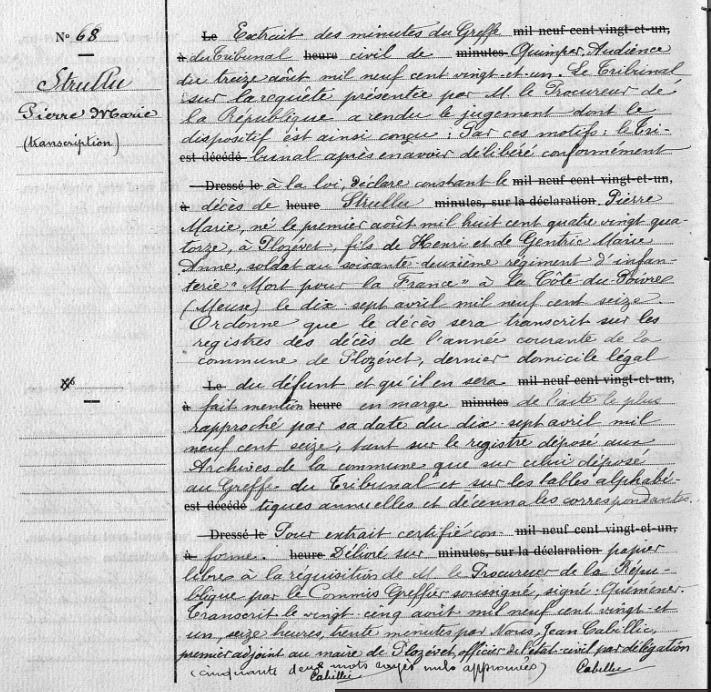 N° 68
Strullu
Pierre Marie
(transcription)
Le Extrait des minutes du Greffe mil neuf cent vingt-et-un,
à du Tribunal heure civil de minutes Quimper, Audience
du treize août mil neuf cent vingt-et-un. Le Tribunal
sur la requête présentée par M. le Procureur de
la République a rendu le jugement dont le
dispositif est ainsi conçu : Par ces motifs : le Tri-
est décédé bunal après en avoir délibéré conformément
Dressé le à la loi, déclare constant le mil neuf cent vingt-et-un,
à décès de heure Strullu minutes, sur la déclaration Pierre
Marie, né le premier août mil huit cent quatre vingt qua-
torze, à Plozévet, fils de Henri et de Gentric Marie
Anne, soldat au soixante-deuxième régiment d'infan-
terie "Mort pour la France" à la Côte du Poivre
(Meuse) le dix-sept avril mil neuf cent seize.
Ordonne que le décès sera transcrit sur les
registres des décès de l'année courante de la
commune de Plozévet, dernier domicile légal
Le du défunt et qu'il en sera mil neuf cent vingt-et-un,
à fait mention heure en marge minutes de l'acte le plus
rapproché par sa date du dix-sept avril mil
neuf cent seize, tant sur le registre déposé aux
Archives de la commune que sur celui déposé
au Greffe du Tribunal et sur les tables alphabé-
est décédé tiques annuelles et décennales correspondantes.
Dressé le Pour extrait certifié con- mil neuf cent vingt-et-un,
à forme. heure Délivré sur minutes, sur la déclaration papier
libre à la réquisition de M. le Procureur de la Répu-
blique par le Commis Greffier soussigné, signé : Quéméner.
Transcrit le vingt-cinq août mil neuf cent vingt-et
un, seize heures, trente minutes par Nous, Jean Cabillic,
premier adjoint au maire de Plozévet, officier de l'état-civil par délégation
(cinquante deux mots rayés nuls approuvés) Cabillic
Cabillic